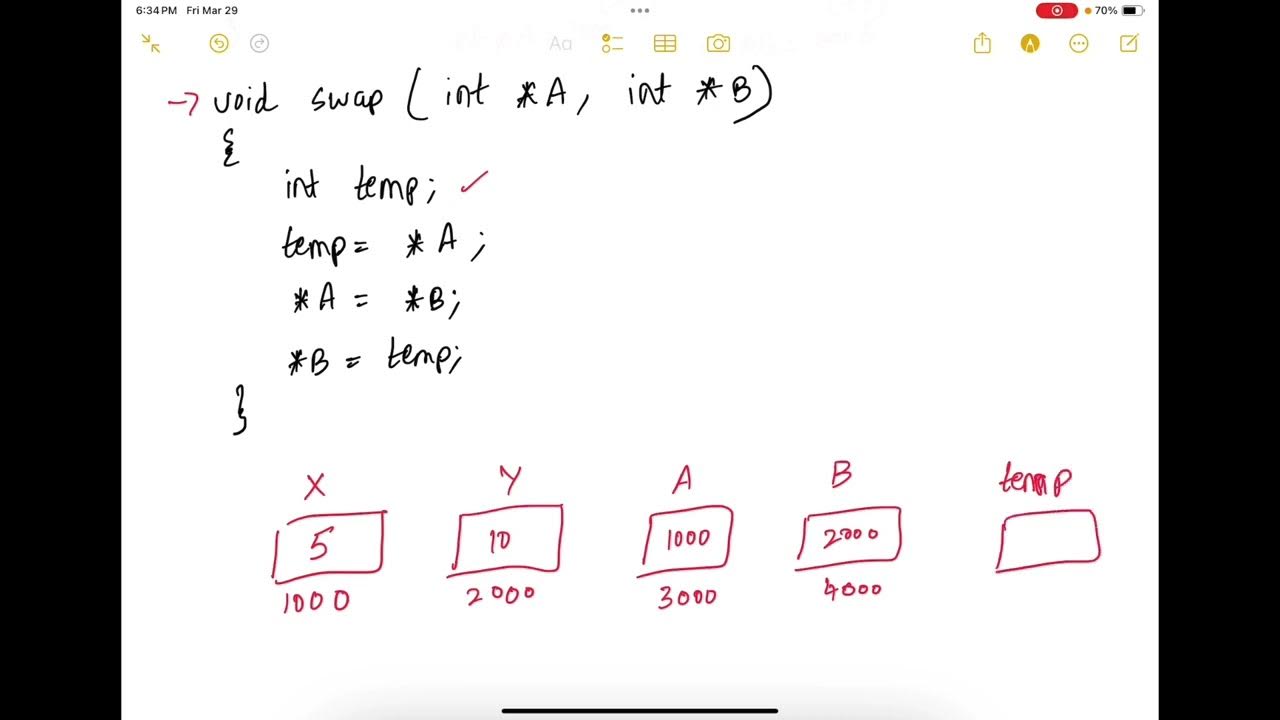 6:34 PM Fri Mar 29
70%
Aa
→ void swap (int *A, int *B)
{
int temp; ✓
temp = *A;
*A = *B;
*B = temp;
}
X Y A B temp
5 10 1000 2000
1000 2000 3000 4000